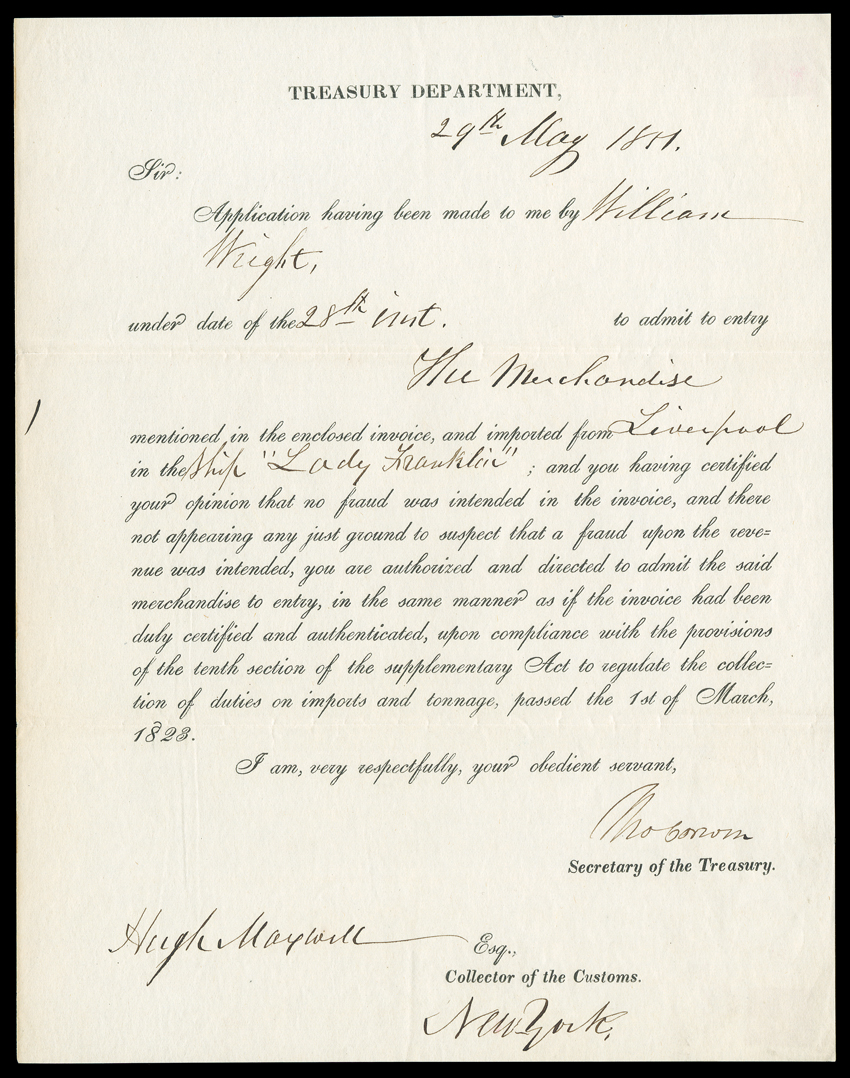 TREASURY DEPARTMENT,
29th May 1851.
Sir:
Application having been made to me by William
Wright,
under date of the 28th inst. to admit to entry
The Merchandise
mentioned in the enclosed invoice, and imported from Liverpool
in the Ship "Lady Franklin" ; and you having certified
your opinion that no fraud was intended in the invoice, and there
not appearing any just ground to suspect that a fraud upon the reve=
nue was intended, you are authorized and directed to admit the said
merchandise to entry, in the same manner as if the invoice had been
duly certified and authenticated, upon compliance with the provisions
of the tenth section of the supplementary Act to regulate the collec=
tion of duties on imports and tonnage, passed the 1st of March,
1823.
I am, very respectfully, your obedient servant,
Tho Corwin
Secretary of the Treasury.
Hugh Maxwell Esq.,
Collector of the Customs.
New York.